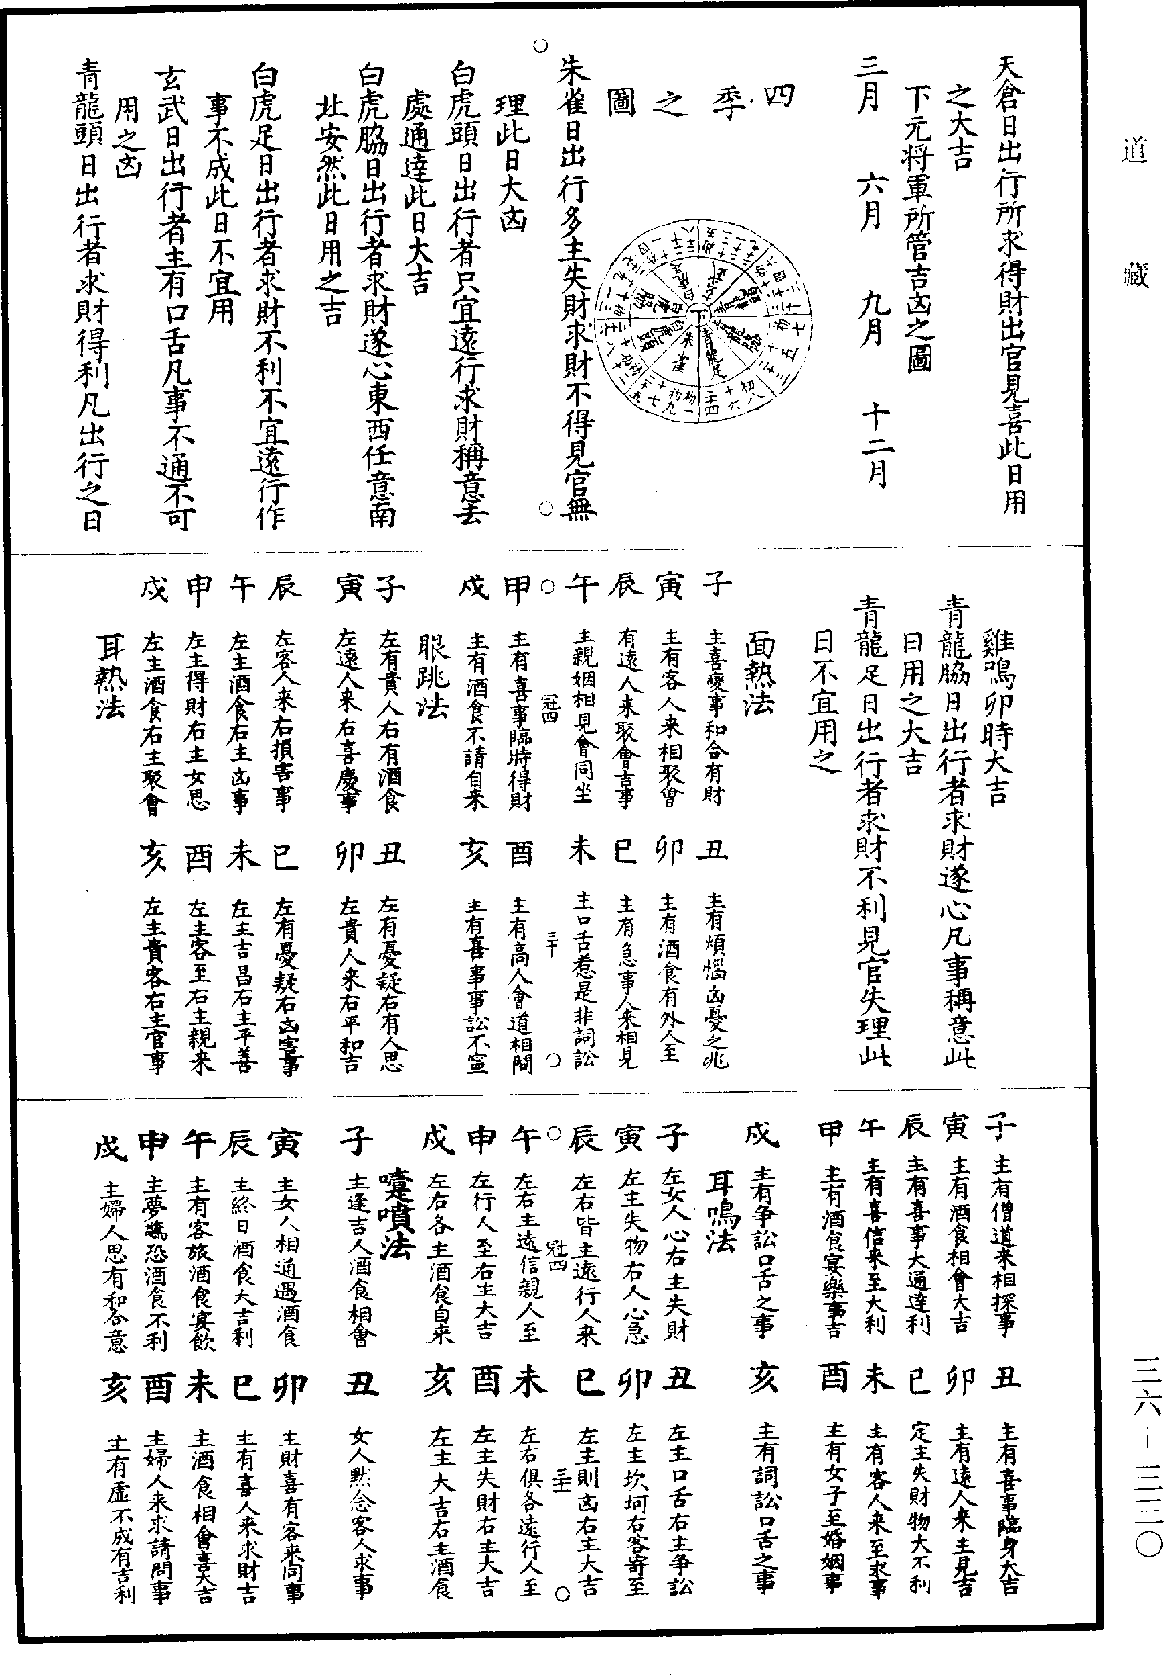 道藏
天倉日出行所求得財出官見喜此日用
之大吉
下元将軍所管吉凶之圖
三月　六月　九月　十二月
四季之圖
朱雀日出行多主失財求財不得見官無
理此日大凶
白虎頭日出行者只宜遠行求財稱意去
處通達此日大吉
白虎脇日出行者求財遂心東西任意南
北安然此日用之吉
白虎足日出行者求財不利不宜遠行作
事不成此日不宜用
玄武日出行者主有口舌凡事不通不可
用之凶
青龍頭日出行者求財得利凡出行之日
雞鳴卯時大吉
青龍脇日出行者求財遂心凡事稱意此
日用之大吉
青龍足日出行者求財不利見官失理此
日不宜用之
面熱法
子　主喜慶事和合有財　丑　主有煩惱凶憂之兆
寅　主有客人来相聚會　卯　主有酒食有外人至
辰　有遠人来聚會吉事　巳　主有急事人来相見
午　主親姻相見會同坐　未　主口舌惹是非詞訟
申　主有喜事臨時得財　酉　主有高人會道相問
戍　主有酒食不請自来　亥　主有喜事事訟不宣
眼跳法
子　左有貴人右有酒食　丑　左有憂疑右有人思
寅　左遠人来右喜慶事　卯　左貴人来右平和吉
辰　左客人来右損害事　巳　左有憂疑右凶害事
午　左主酒食右主凶事　未　左主吉昌右主平善
申　左主得財右主女思　酉　左主客至右主親来
戍　左主酒食右主聚會　亥　左主貴客右主官事
耳熱法
子　主有僧道来相探事　丑　主有喜事臨身大吉
寅　主有酒食相會大吉　卯　主有遠人来主見吉
辰　主有喜事大通達利　巳　定主失財物大不利
午　主有喜信来至大利　未　主有客人来至求事
申　主有酒食宴樂事吉　酉　主有女子至婚姻事
戍　主有争訟口舌之事　亥　主有詞訟口舌之事
耳鳴法
子　左女人心右主失財　丑　左主口舌右主争訟
寅　左主失物右人心急　卯　左主坎坷右客寄至
辰　左右皆主遠行人来　巳　左主則凶右主大吉
午　左右主遠信親人至　未　左右俱各遠行人至
申　左行人至右主大吉　酉　左主失財右主大吉
戍　左右各主酒食自来　亥　左主大吉右主酒食
嚏噴法
子　主逢吉人酒食相會　丑　女人黙念客人求事
寅　主女人相通遇酒食　卯　主財喜有客来问事
辰　主終日酒食大吉利　巳　主有喜人来求財吉
午　主有客旅酒食宴飲　未　主酒食相會喜大吉
申　主夢驚恐酒食不利　酉　主婦人来求請問事
戍　主婦人思有和合意　亥　主有虛不成有吉利
三六—三三〇